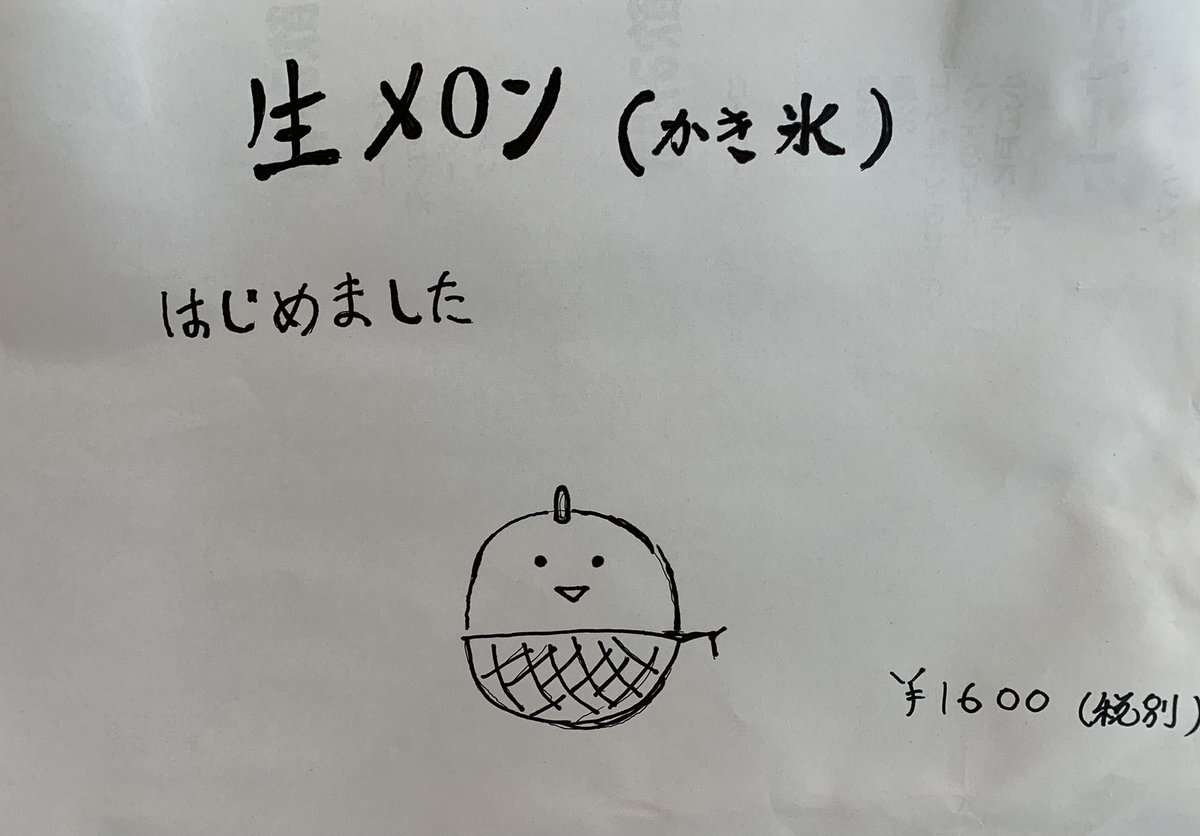 生メロン（かき氷）
はじめました
¥1600（税別）